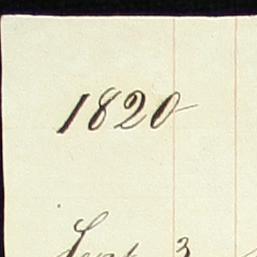 1820
Sept 3